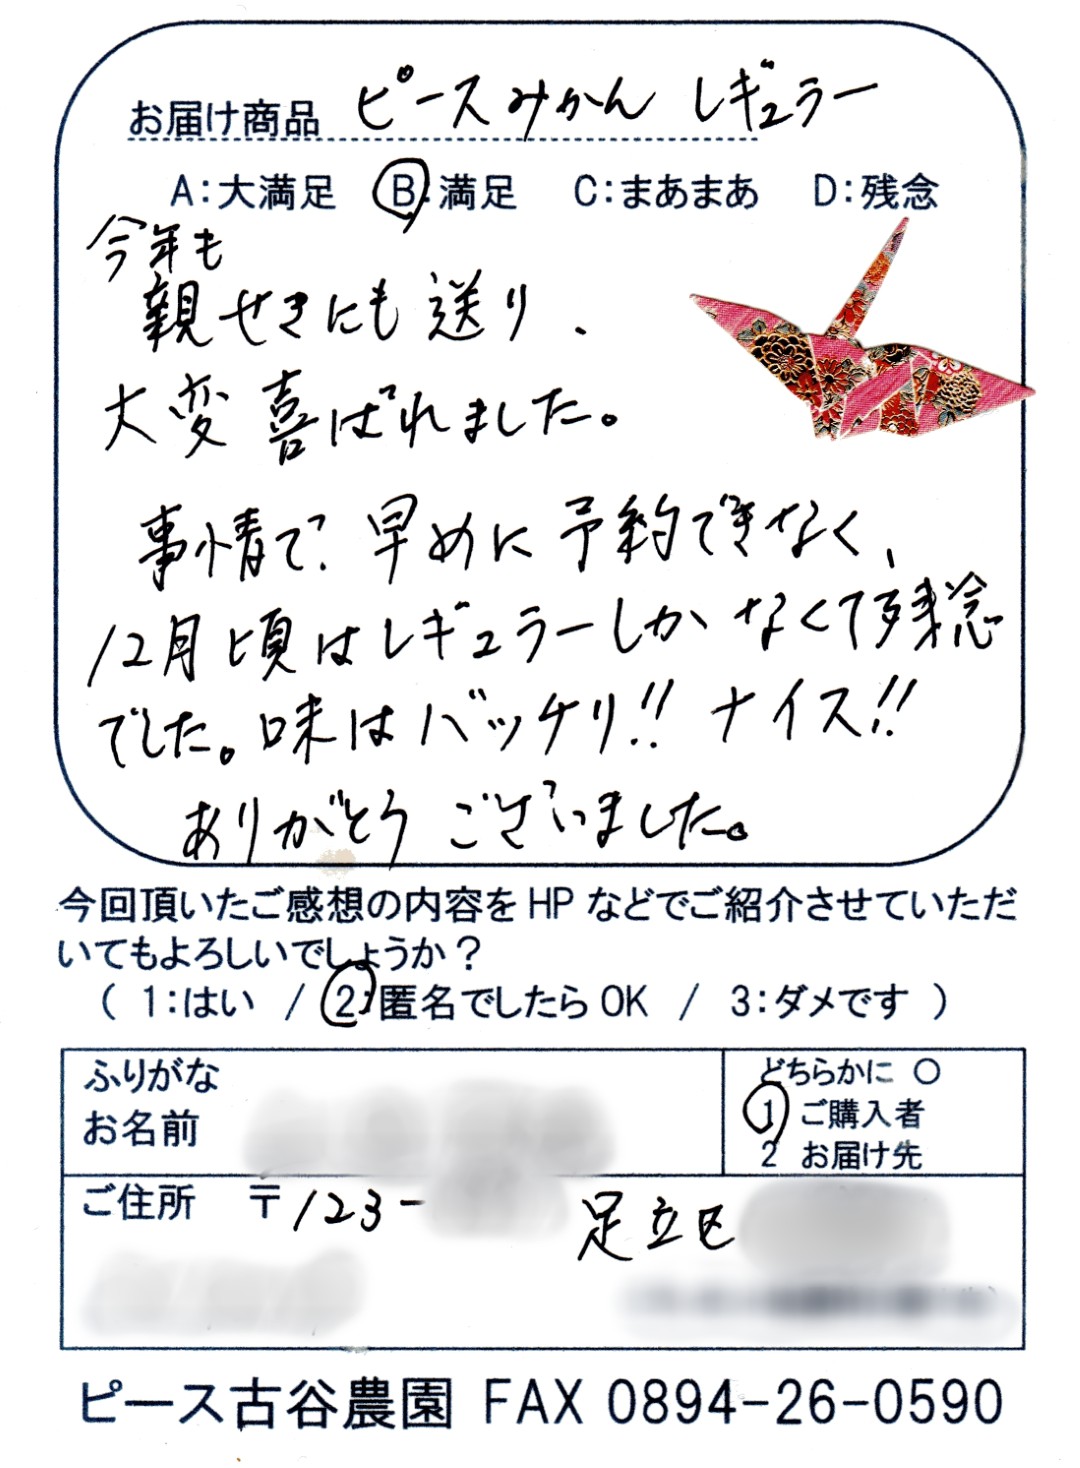 お届け商品 ピースみかん レギュラー
A:大満足 B:満足 C:まあまあ D:残念
今年も
親せきにも送り、
大変喜ばれました。
事情で、早めに予約できなく、
12月頃はレギュラーしかなくて残念
でした。味はバッチリ!! ナイス!!
ありがとうございました。
今回頂いたご感想の内容をHPなどでご紹介させていただ
いてもよろしいでしょうか?
( 1:はい / 2:匿名でしたらOK / 3:ダメです )
ふりがな
お名前
どちらかに ○
1 ご購入者
2 お届け先
ご住所 〒123- 足立区
ピース古谷農園 FAX 0894-26-0590